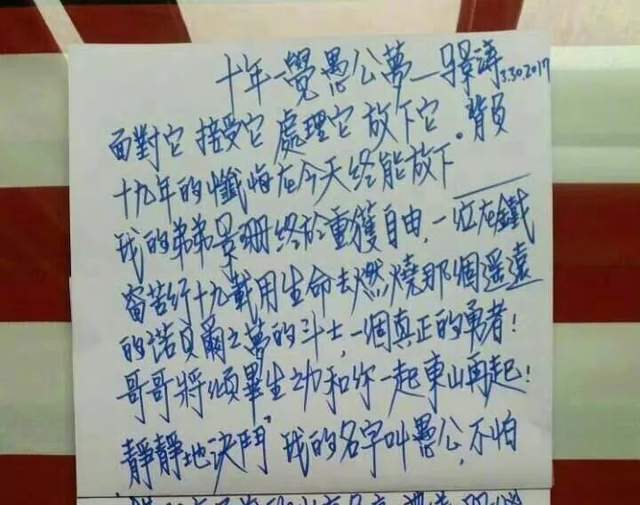 十年一覺愚公夢—景濤 3.30.2017
面對它 接受它 處理它 放下它。背負
十九年的懺悔在今天终能放下——
我的弟弟景珊终於重獲自由,一位在鐵
窗苦行十九載用生命去燃燒那個遥遠
的诺貝爾之夢的斗士,一個真正的勇者!
哥哥將傾畢生功和你一起東山再起!
靜靜地決鬥" 我的名字叫愚公,不怕